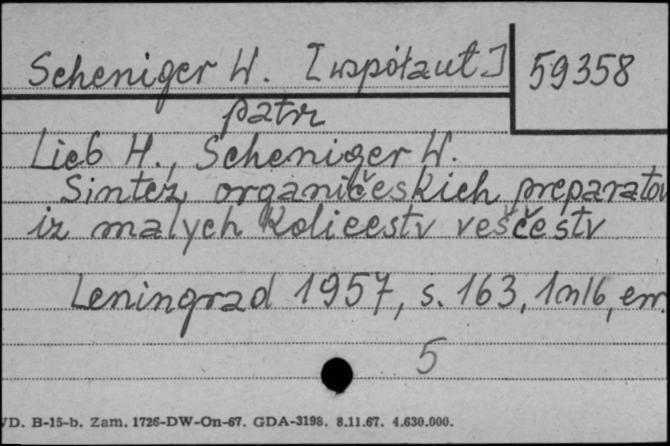 Scheniger W. [współaut] 59358
patrz
Lieb H., Scheniger W.
Sintez organičeskich preparatov
iz malych količestv veščestv
Leningrad 1957, s. 163, 1nlb, err.
5
VD. B-15-b. Zam. 1726-DW-On-67. GDA-3198. 8.11.67. 4.630.000.